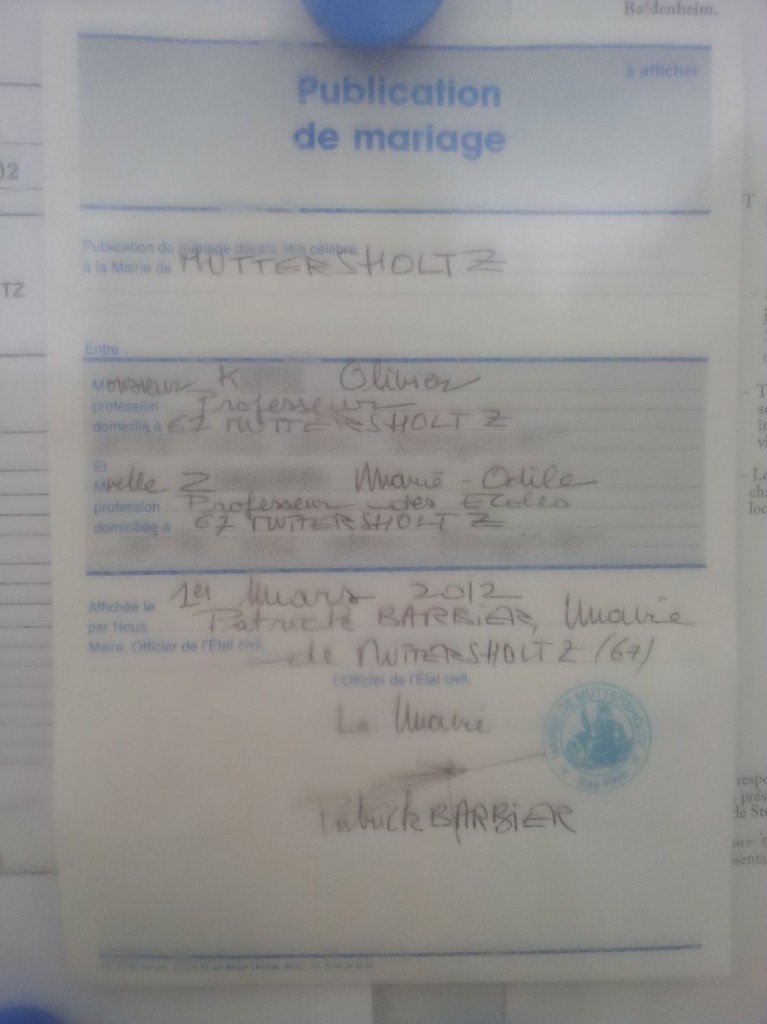 Baldenheim.
à afficher
Publication
de mariage
Publication du mariage devant être célébré
à la Mairie de MUTTERSHOLTZ
Entre :
Monsieur K Olivier
profession Professeur
domicilié à 67 MUTTERSHOLTZ
Et
Melle Z Marie-Odile
profession : Professeur des Ecoles
domiciliée à 67 MUTTERSHOLTZ
Affichée le 1er Mars 2012
par Nous, Patrick BARBIER, Maire
Maire, Officier de l'État civil, de MUTTERSHOLTZ (67)
L'Officier de l'État civil,
Le Maire
MAIRIE DE MUTTERSHOLTZ
Bas-Rhin
Patrick BARBIER
02
TZ